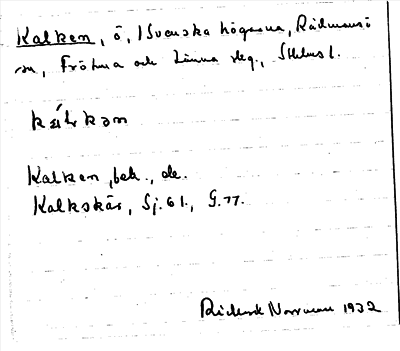 Kalken, ö, i Svenska högarna, Rådmansö
sn, Frötuna och Länna slg., Sthlms l.
Kalken, bek., de.
Kalkskär, Sj. 61., G. 77.
Rickard Norrman 1932